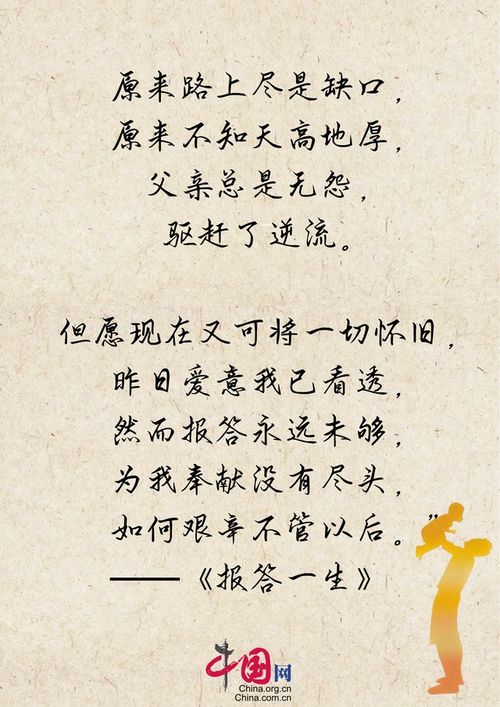 原来路上尽是缺口，
原来不知天高地厚，
父亲总是无怨，
驱赶了逆流。
但愿现在又可将一切怀旧，
昨日爱意我已看透，
然而报答永远未够，
为我奉献没有尽头，
如何艰辛不管以后。”
——《报答一生》
中国网
China.org.cn
China.com.cn